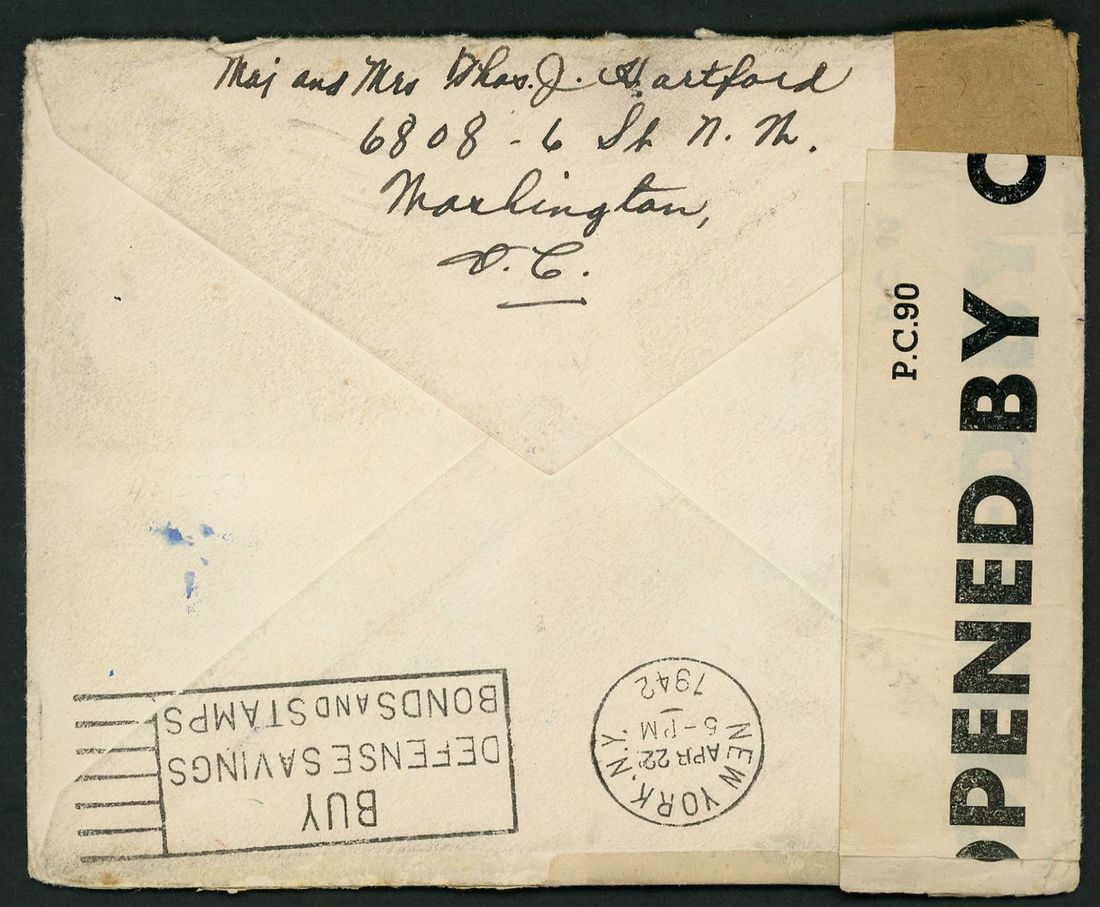 Maj and Mrs Thos. J. Hartford
6808 - 6 St N. W.
Washington,
D. C.
P.C.90
OPENED BY C
BUY
DEFENSE SAVINGS
BONDS AND STAMPS
NEW YORK, N.Y.
APR 22
5-PM
1942